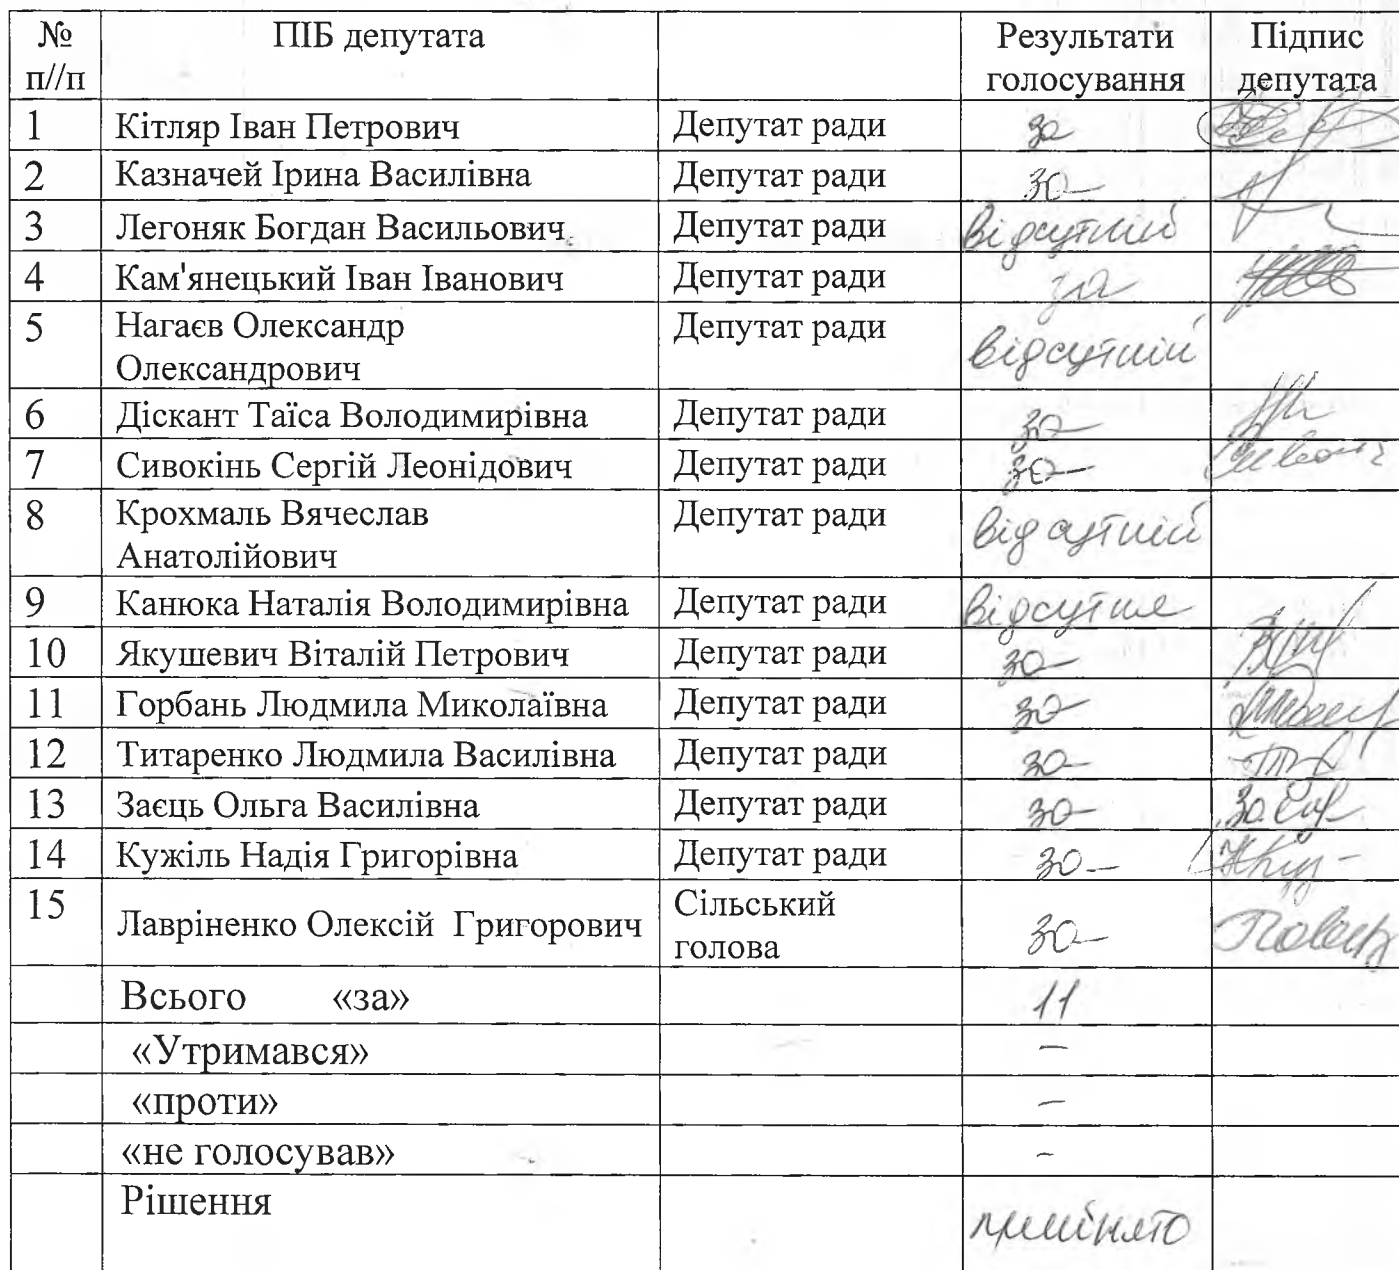 № п//п ПІБ депутата Результати голосування Підпис депутата
1 Кітляр Іван Петрович Депутат ради за
2 Казначей Ірина Василівна Депутат ради за
3 Легоняк Богдан Васильович Депутат ради відсутній
4 Кам'янецький Іван Іванович Депутат ради за
5 Нагаєв Олександр Олександрович Депутат ради відсутній
6 Діскант Таїса Володимирівна Депутат ради за
7 Сивокінь Сергій Леонідович Депутат ради за
8 Крохмаль Вячеслав Анатолійович Депутат ради відсутній
9 Канюка Наталія Володимирівна Депутат ради відсутня
10 Якушевич Віталій Петрович Депутат ради за
11 Горбань Людмила Миколаївна Депутат ради за
12 Титаренко Людмила Василівна Депутат ради за
13 Заєць Ольга Василівна Депутат ради за
14 Кужіль Надія Григорівна Депутат ради за
15 Лавріненко Олексій Григорович Сільський голова за
Всього «за» 11
«Утримався» –
«проти» –
«не голосував» –
Рішення прийнято